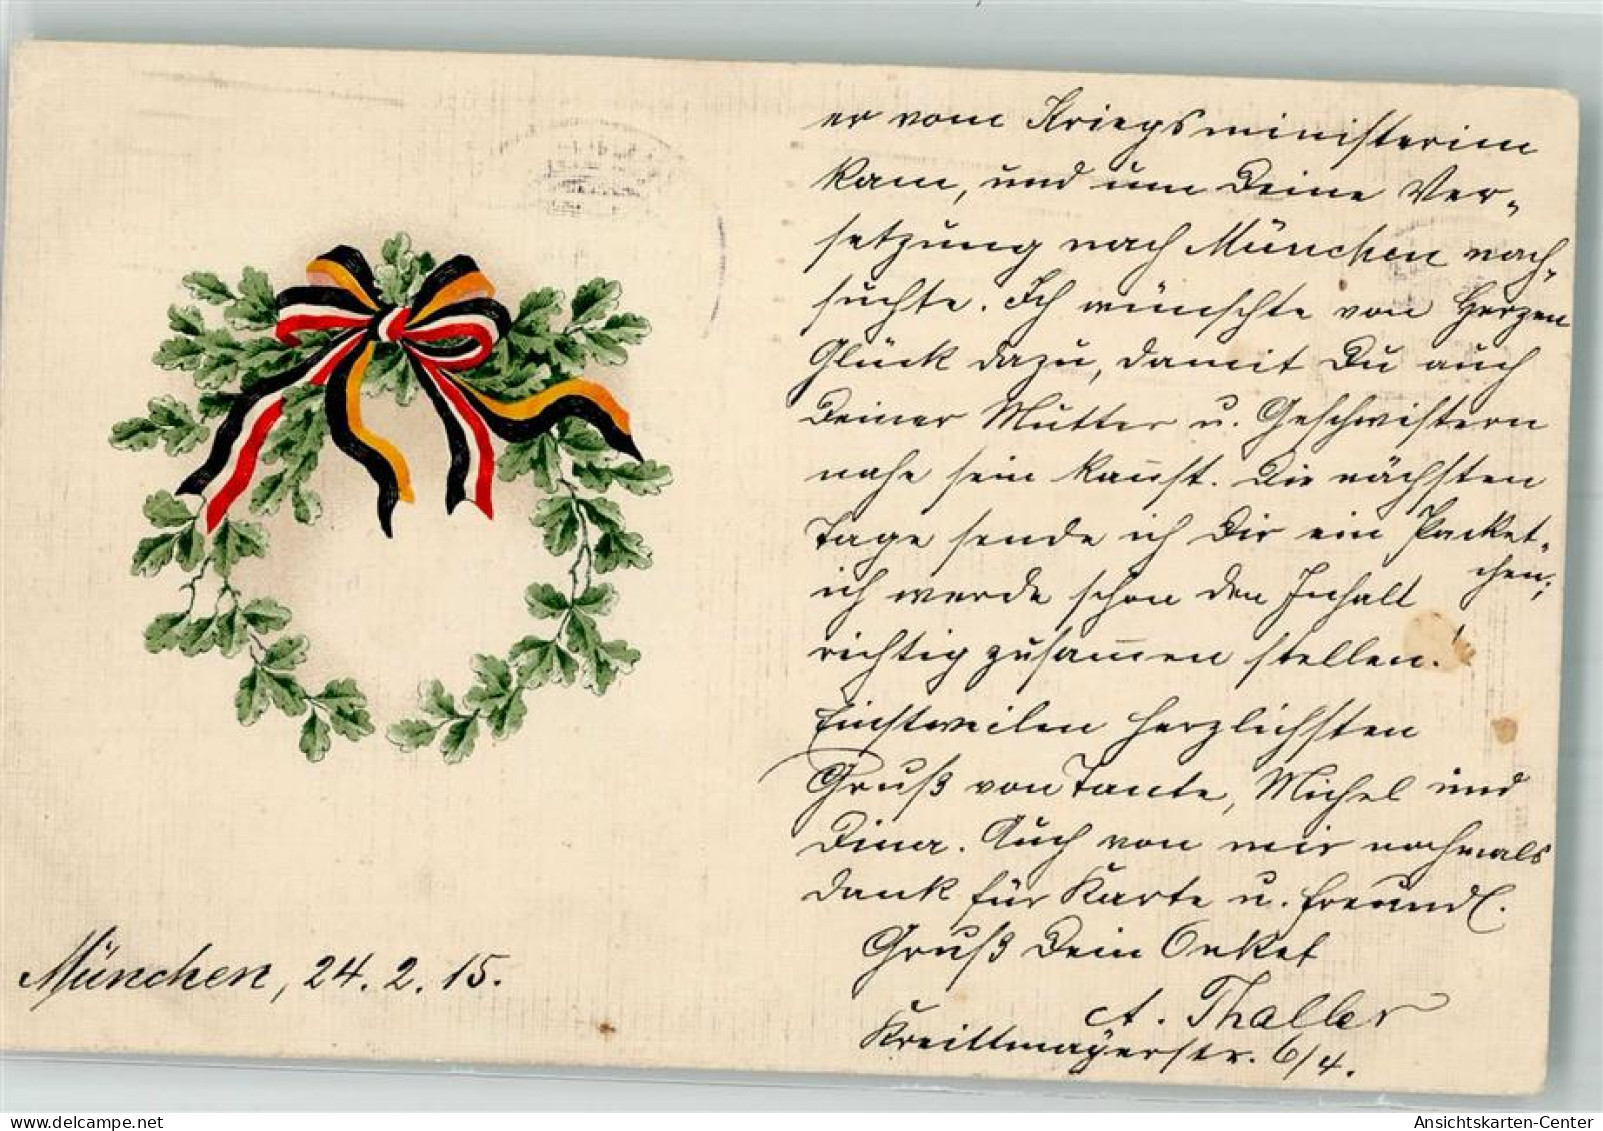 er vom Kriegsministerium
kam, und um Deine Ver-
setzung nach München nach-
suchte. Ich wünschte von Herzen
Glück dazu, damit Du auch
Deiner Mutter u. Geschwistern
nahe sein kannst. Die nächsten
Tage sende ich Dir ein Packet-
chen;
ich werde schon den Inhalt
richtig zusammen stellen.
Einstweilen herzlichsten
Gruß von Tante, Michel und
Dina. Auch von mir nochmals
Dank für Karte u. freundl.
Gruß Dein Onkel
A. Thaller
Kreittmayerstr. 6/4.
München, 24. 2. 15.
Ansichtskarten-Center